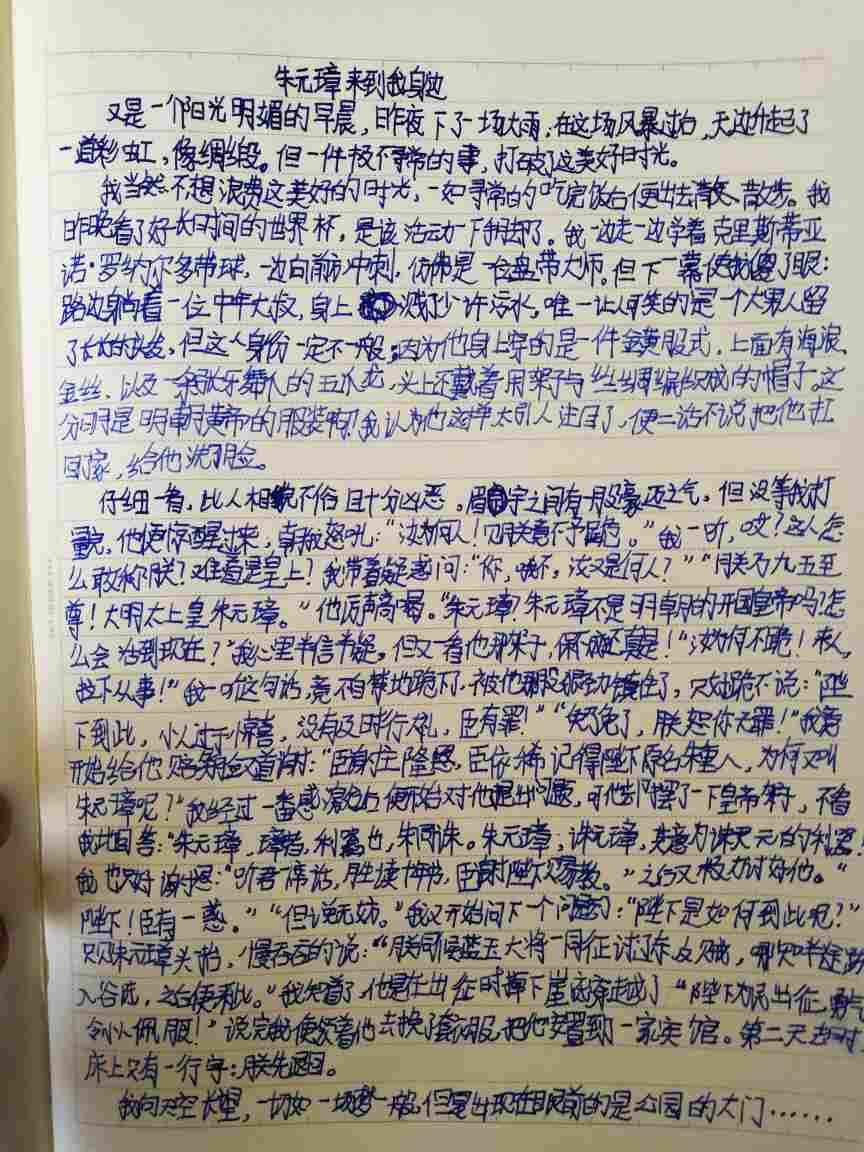 朱元璋来到我身边
又是一个阳光明媚的早晨,昨夜下了一场大雨,在这场风暴过后,天边升起了
一道彩虹,像绸缎。但一件极不寻常的事,打破了这美好时光。
我当然不想浪费这美好的时光,一如寻常的吃完饭后便出去散散步。我
昨晚看了好长时间的世界杯,是该活动一下了。我一边走一边学着克里斯蒂亚
诺·罗纳尔多带球,一边向前冲刺,仿佛是一位盘带大师。但下一幕使我傻了眼:
路边躺着一位中年大叔,身上溅了少许污水。唯一让人可笑的是一个大男人留
了长长的头发,但这人身份一定不一般,因为他身上穿的是一件金黄服式,上面有海浪,
金丝,以及一条张牙舞爪的五爪龙,头上还戴着用架子与丝绸编织成的帽子。这
分明是明朝黄帝的服装啊!我认为他这样太引人注目了,便二话不说把他扛
回家,给他洗了脸。
仔细一看,此人相貌不俗且十分凶恶。眉宇之间有一股豪迈之气。但没等我打
量完,他便惊醒过来,朝我怒吼:“汝为何人!见朕竟不予。”我一听,哎?这人怎
么敢称朕?难道是皇上?我带着疑惑问:“你,哦不,汝又是何人?”“朕乃九五至
尊!大明太上皇朱元璋。”他厉声高喝。“朱元璋?朱元璋不是明朝的开国皇帝吗?怎
么会活到现在?”我心里半信半疑。但又一看他那架子,保不准还真是!“汝为何不跪!来人,
拉下从事!”我一听这句话,竟不自禁地跪下,被他那股振动镇住了,只好跪下说:“陛
下到此,小人过于惊喜,没有及时行大礼,臣有罪!”“免了免了,朕恕你无罪!”我竟
开始给他赔笑又道谢:“臣谢主隆恩,臣依稀记得陛下原名朱重八,为何又叫
朱元璋呢?”我经过一番感激后便开始对他提出问题,可他却摆了一下皇帝架子,不看
我地回答:“朱元璋,璋者,利器也,朱同诛。朱元璋,诛元璋,其意为诛灭元的利器!”
我也只好谢恩:“听君一席话,胜读十年书,臣谢陛下赐教。”之后又极力讨好他。“
陛下!臣有一惑。”“但说无妨。”我又开始问下一个问题:“陛下是如何到此呢?”
只见朱元璋头一抬,慢吞吞的说:“朕同侯蓝玉大将一同征讨辽东反贼,哪知半途跌
入谷底,之后便来此。”我知道了,他是在出征时掉下崖底穿越了“陛下为民出征,勇气
令小人佩服!”说完我便领着他去换了套衣服,把他安置到一家宾馆。第二天去时,
床上只有一行字:朕先退回。
我向天空长望,一切如一场梦一般,但是出现在眼前的是公园的大门……